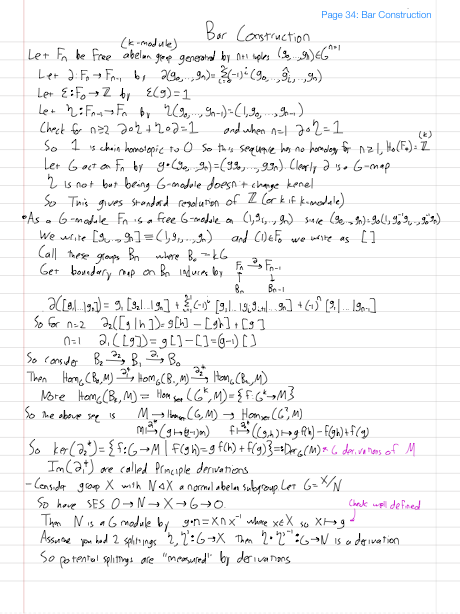 Page 34: Bar Construction
Bar Construction
(k-module)
Let Fₙ be Free abelian group generated by n+1 tuples (g₀,...,gₙ)∈Gⁿ⁺¹
Let ∂:Fₙ→Fₙ₋₁ by ∂(g₀,...,gₙ)=Σ(-1)ⁱ(g₀,..,ĝᵢ,..,gₙ)
Let ε:F₀→ℤ by ε(g)=1
Let η:Fₙ₋₁→Fₙ by η(g₀,...,gₙ₋₁)=(1,g₀,...,gₙ₋₁)
Check for n≥2 ∂∘η+η∘∂=1 and when n=1 ∂∘η=1
So 1 is chain homotopic to 0 So this sequence has no homology for n≥1, H₀(Fₙ)=ℤ (k)
Let G act on Fₙ by g·(g₀,..,gₙ)=(gg₀,...,ggₙ). Clearly ∂ is a G-map
η is not but being G-module doesn't change kernel
So This gives standard resolution of ℤ (or k if k-module)
•As a G-module Fₙ is a free G-module on (1,g₁,..,gₙ) since (g₀,..,gₙ)=g₀(1,g₀⁻¹g₁,..,g₀⁻¹gₙ)
We write [g₁,..,gₙ]≡(1,g₁,..,gₙ) and (1)∈F₀ we write as [ ]
Call these groups Bₙ where B₀=kG
Get boundary map on Bₙ induced by Fₙ →∂ Fₙ₋₁
↑ ↓
Bₙ Bₙ₋₁
∂([g₁|...|gₙ])=g₁[g₂|...|gₙ]+Σ(-1)ⁱ[g₁|..|gᵢgᵢ₊₁|...|gₙ]+(-1)ⁿ[g₁|...|gₙ₋₁]
So for n=2 ∂₂([g|h])=g[h]-[gh]+[g]
n=1 ∂₁([g])=g[ ]-[ ]=(g-1)[ ]
So consider B₂ →∂₂ B₁ →∂₁ B₀
Then Hom_G(B₀,M) →∂₁* Hom_G(B₁,M) →∂₂* Hom_G(B₂,M)
Note Hom_G(Bₖ,M)=Hom_set(Gᵏ,M)={f:Gᵏ→M}
So the above seq is M→Hom_set(G,M)→Hom_set(G²,M)
m ↦∂₁* (g↦(g-1)m) f ↦∂₂* ((g,h)↦gf(h)-f(gh)+f(g))
So ker(∂₂*)={f:G→M | f(gh)=gf(h)+f(g)}=:Der_G(M) = G derivations of M
Im(∂₁*) are called Principle derivations
-Consider group X with N◁X a normal abelian subgroup. Let G=X/N
So have SES 0→N→X→G→0.
Check well defined
Then N is a G module by g·n=xnx⁻¹ where x∈X so x↦g
Assume you had 2 splittings η,η':G→X Then η·η'⁻¹:G→N is a derivation
So potential splittings are "measured" by derivations